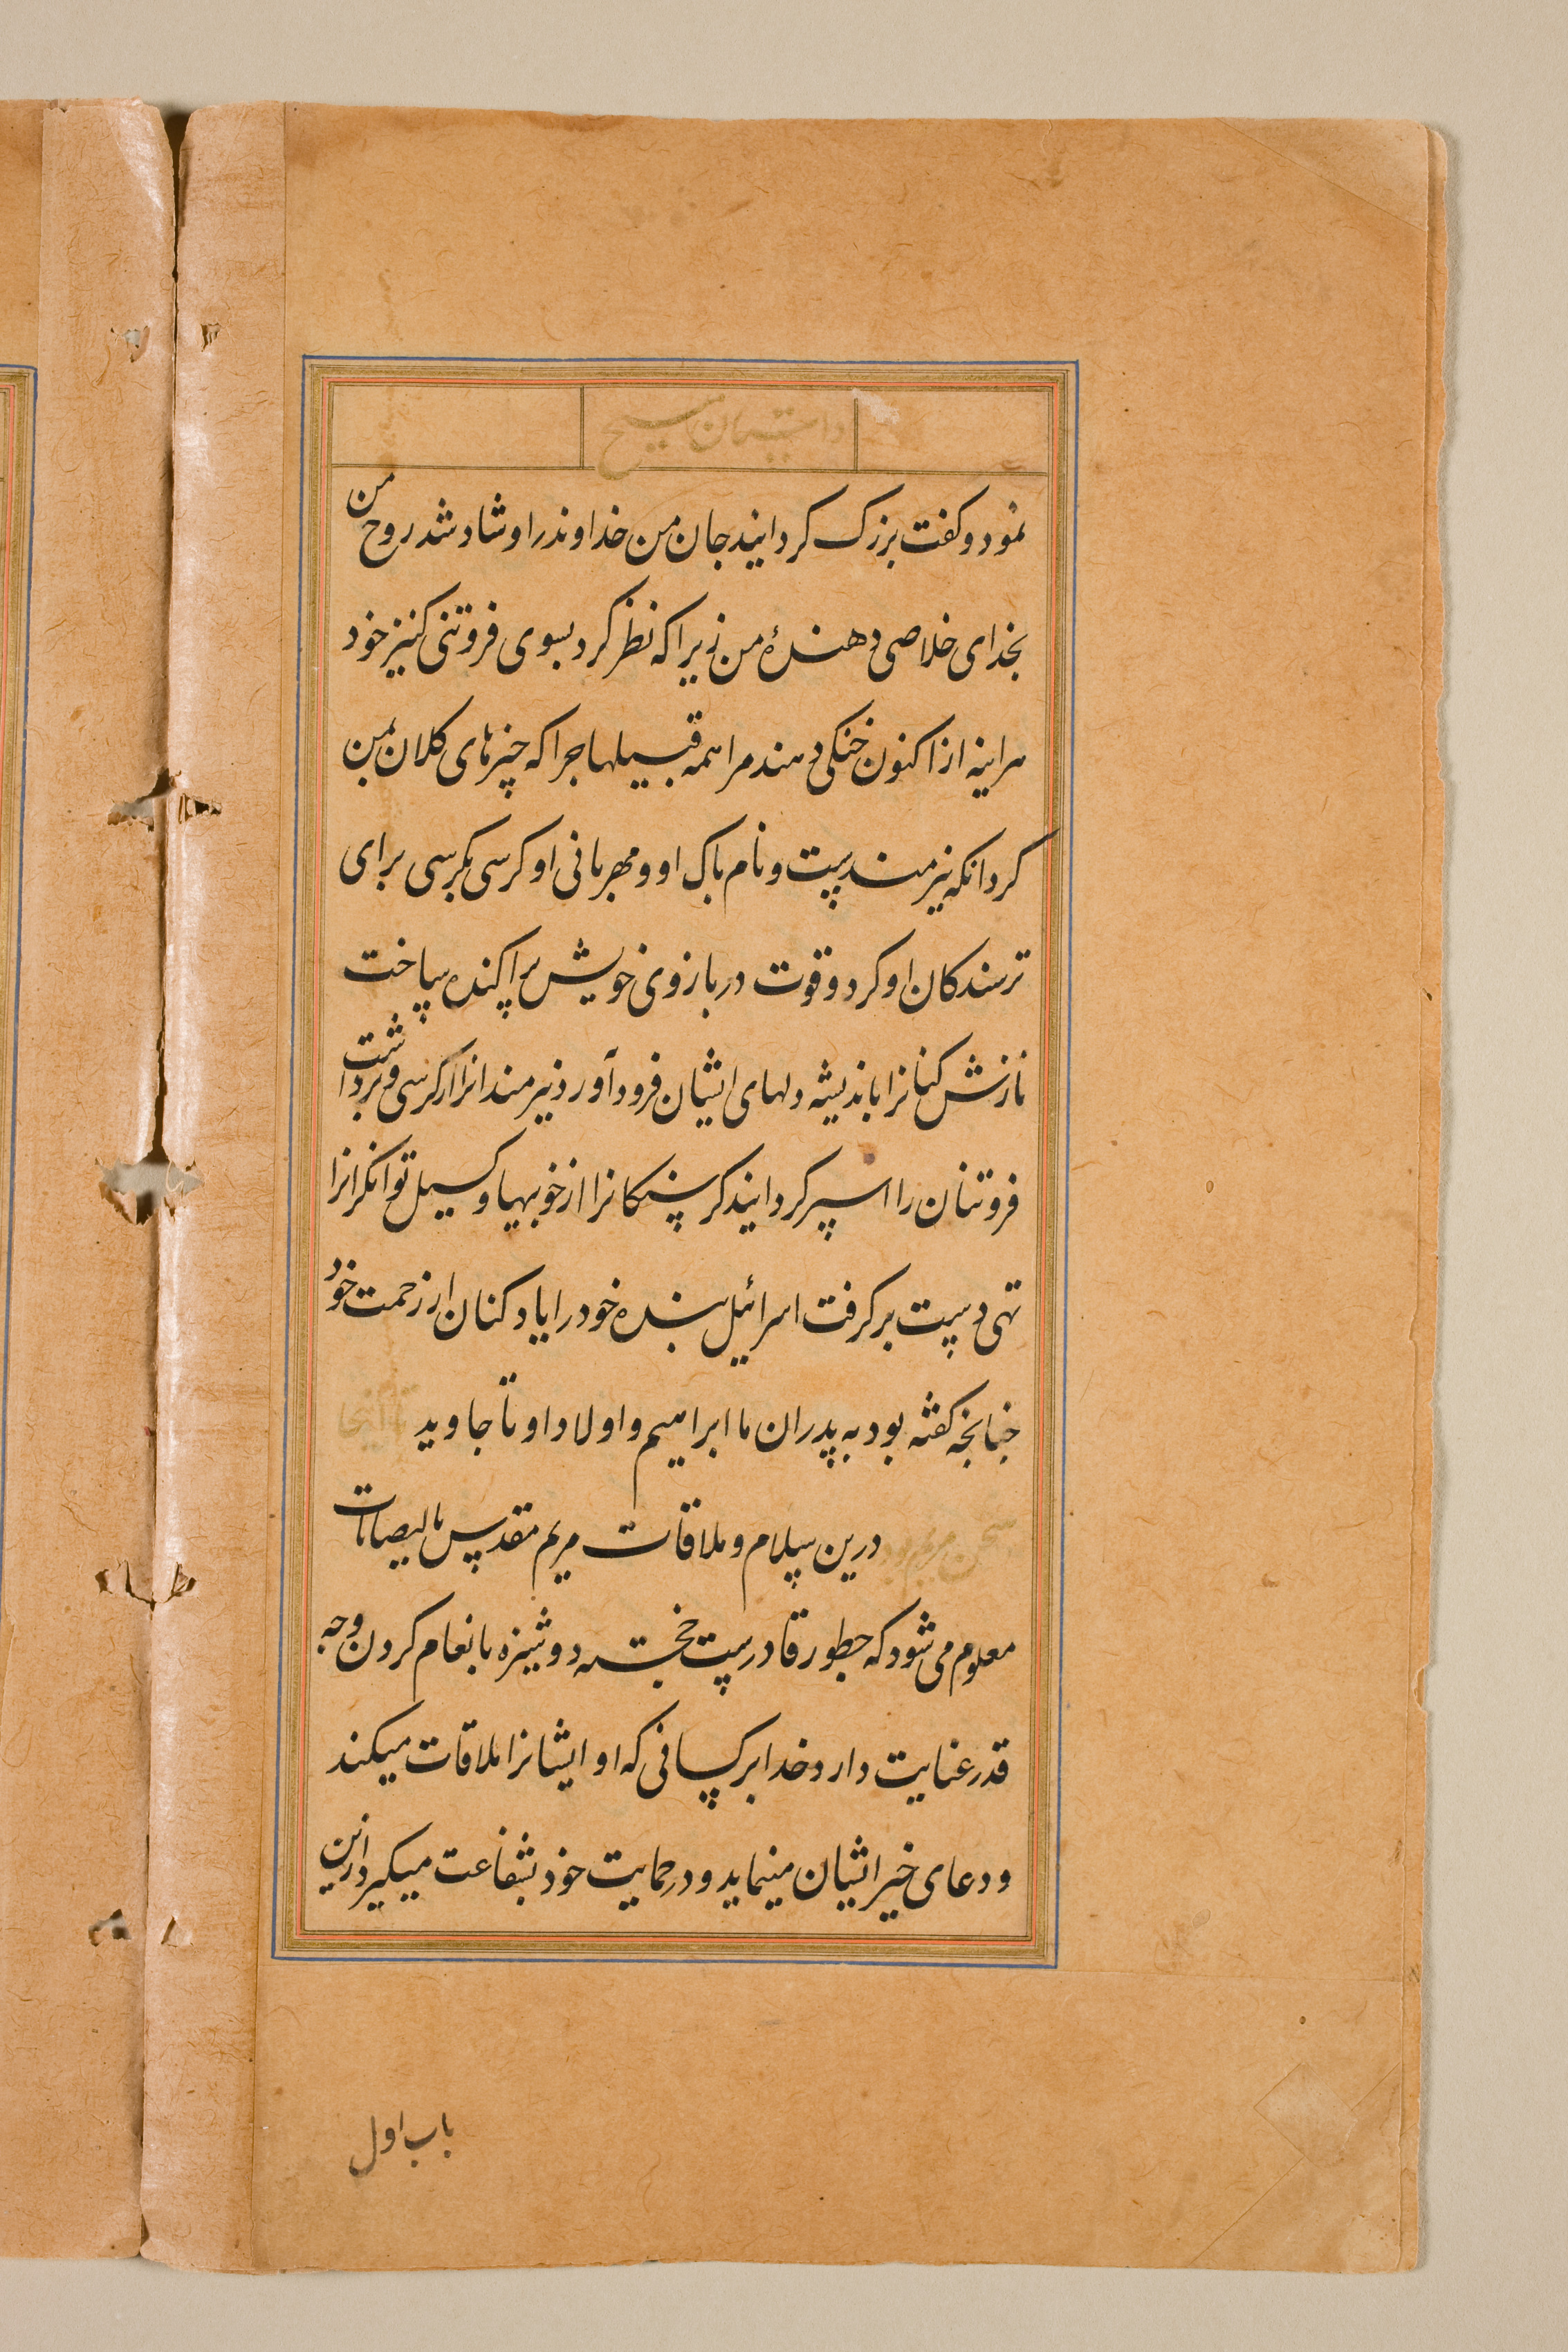 داستان مسیح
نمود و کفت بزرک کردانید جان من خداوند را و شاد شد روح من
بخدای خلاصی دهندهٔ من زیرا که نظر کرد بسوی فروتنی کنیز خود
هراینه از اکنون خنکی دهند مرا همه قبیلها جرا که چیزهای کلان بمن
کرد انکه نیرمندست و نام باک او و مهربانی او کرسی بکرسی برای
ترسندکان او کرد و قوت در بازوی خویش براکنده ساخت
نازش کنانرا باندیشه دلهای ایشان فرود آورد نیرمندانرا از کرسی و برداشت
فروتنان را سیر کردانید کرسنکانرا از خوبیها و کسیل توانکرانرا
تهی دست بر کرفت اسرائیل بنده خود را یاد کنان از رحمت خود
جنانجه کفته بود به پدران ما ابراهیم و اولاد او تا جاوید تا اینجا
سخن مریم بود درین سلام و ملاقات مریم مقدس با لیصابات
معلوم می شود که جطور قادرست خجسته دوشیزه بانعام کردن و جه
قدر عنایت دارد خدا بر کسانی که او ایشانرا ملاقات میکند
و دعای خیر ایشان مینماید و در حمایت خود بشفاعت میکیرد ازین
باب اول